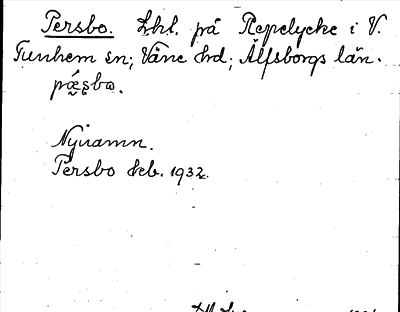 Persbo. Lhl. på Repelycke i V.
Tunhem sn; Väne hd; Älfsborgs län.
Nynamn.
Persbo heb. 1932